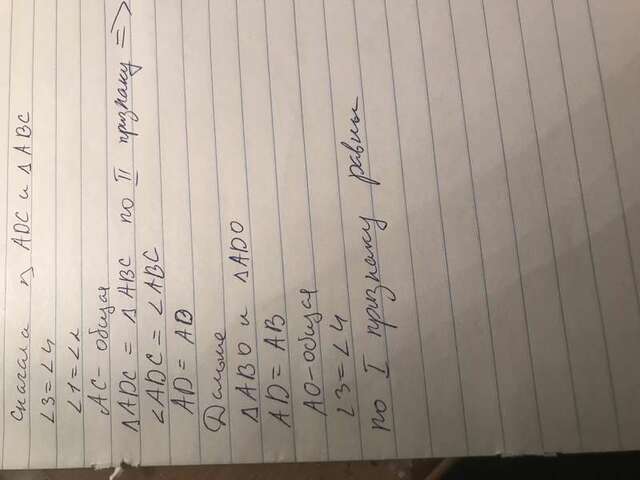 Сначала △ ADC и △ABC
∠3=∠4
∠1=∠2
AC - общая
△ADC = △ABC по II признаку =>
∠ADC = ∠ABC
AD = AB
Дальше
△ABO и △ADO
AD = AB
AO-общая
∠3=∠4
по I признаку равны